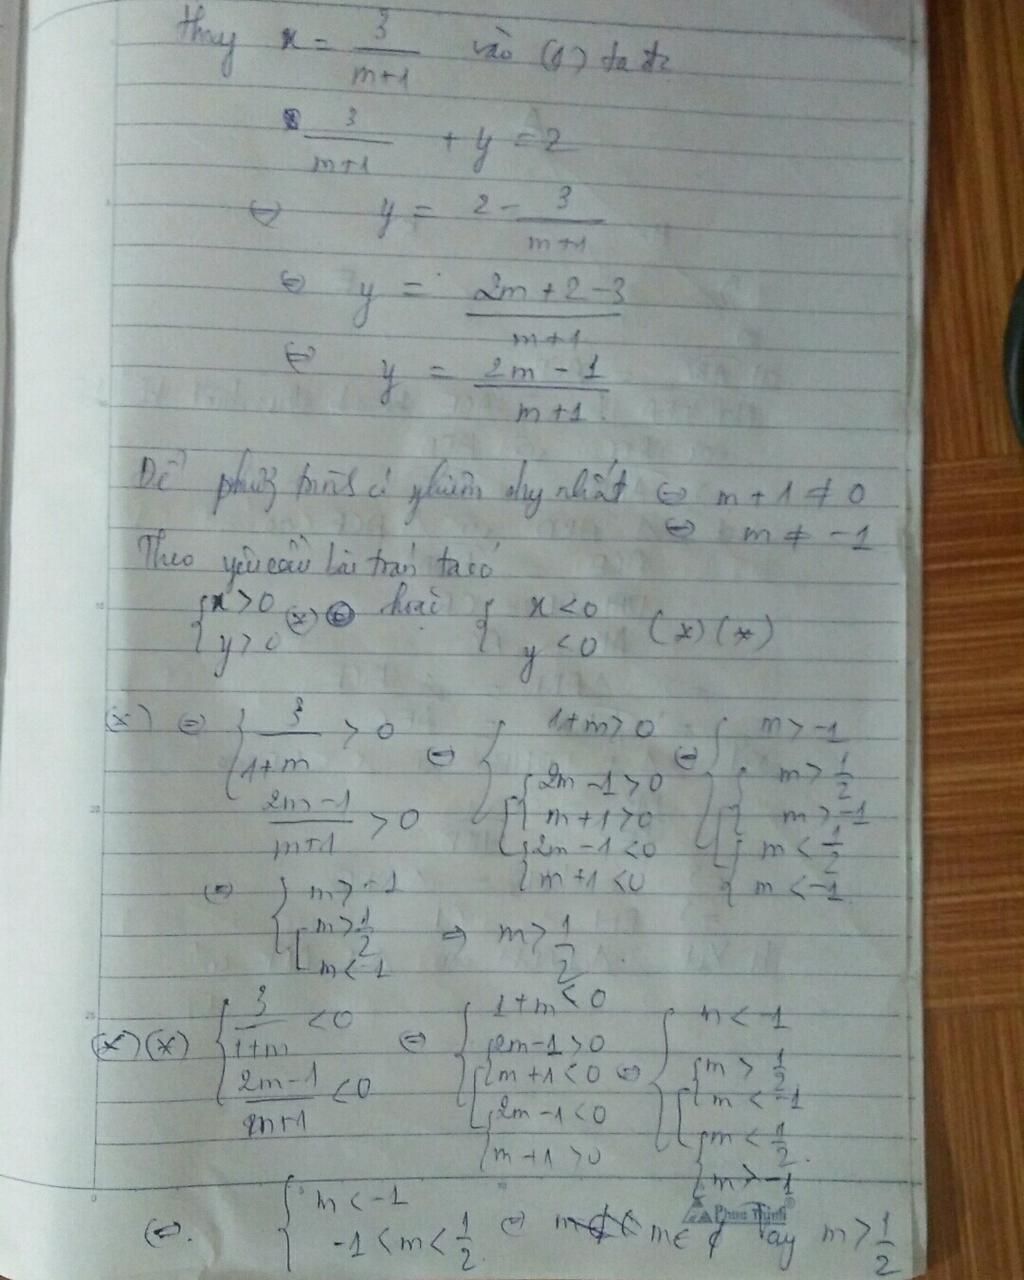 thay x = 3/(m+1) vào (1) ta đc
3/(m+1) + y = 2
⇔ y = 2 - 3/(m+1)
⇔ y = (2m+2-3)/(m+1)
⇔ y = (2m-1)/(m+1)
Để phương trình có nghiệm duy nhất ⇔ m+1 ≠ 0
⇔ m ≠ -1
Theo yêu cầu bài toán ta có
{ x>0 (*) hoặc { x<0
{ y>0 { y<0 (*)(*)
(*) ⇔ { 3/(1+m) > 0 ⇔ { 1+m>0 ⇔ { m>-1
{ (2m-1)/(m+1) > 0 [ { 2m-1>0 [ { m>1/2
{ m+1>0 { m>-1
{ 2m-1<0 { m<1/2
{ m+1<0 { m<-1
⇔ { m>-1
[ m>1/2 ⇒ m>1/2.
[ m<-1
(*)(*) { 3/(1+m) <0 ⇔ { 1+m<0 ⇔ { m<-1
{ (2m-1)/(m+1) <0 [ { 2m-1>0 [ { m>1/2
{ m+1<0 { m<-1
{ 2m-1<0 { m<1/2.
{ m+1>0 { m>-1
Phuc Thinh®
⇔. { m<-1
{ -1<m<1/2. ⇔ m∈ ¢ Vay m>1/2